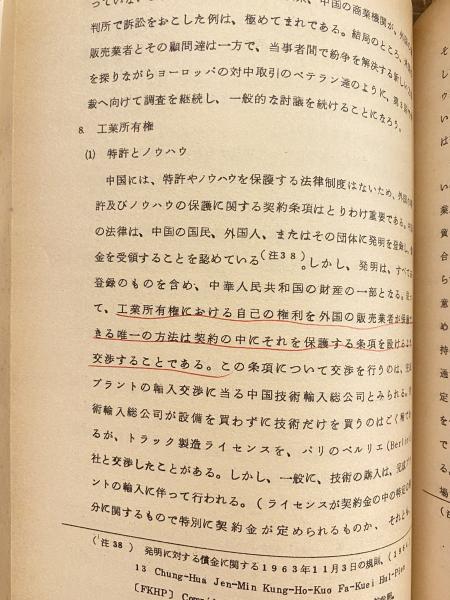 っていない
、中国の商業機関が、外国の
判所で訴訟をおこした例は、極めてまれである。結局のところ、
販売業者とその顧問達は一方で、当事者間で紛争を解決する新しい
を探りながらヨーロッパの対中取引のベテラン達のように、第3
裁へ向けて調査を継続し、一般的な討議を続けることになろう。
8. 工業所有権
(1) 特許とノウハウ
中国には、特許やノウハウを保護する法律制度はないため、外国の
許及びノウハウの保護に関する契約条項はとりわけ重要である。
の法律は、中国の国民、外国人、またはその団体に発明を登録し、
金を受領することを認めている(注38)。しかし、発明は、すべて
登録のものを含め、中華人民共和国の財産の一部となる。
て、工業所有権における自己の権利を外国の販売業者が
きる唯一の方法は契約の中にそれを保護する条項を設ける
交渉することである。この条項について交渉を行うのは、
プラントの輸入交渉に当る中国技術輸入総公司とみられる。
術輸入総公司が設備を買わずに技術だけを買うのはごく
るが、トラック製造ライセンスを、パリのベルリエ(Berliet
社と交渉したことがある。しかし、一般に、技術の購入は、完成
ントの輸入に伴って行われる。(ライセンスが契約金の中の特定の
分に関するもので特別に契約金が定められるものか、それとも
(注38) 発明に対する償金に関する1963年11月3日の規則、(196
13 Chung-Hua Jen-Min Kung-Ho-Kuo Fa-Kuei Hui-Pien
〔FKHP〕